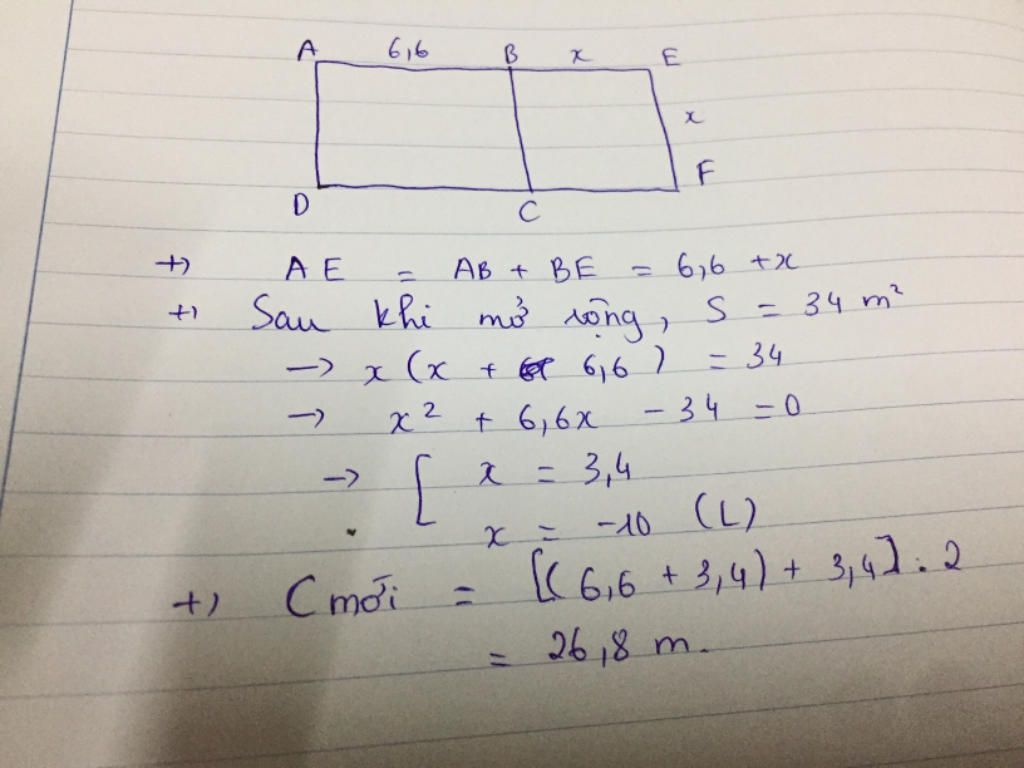 A 6,6 B x E
x
F
D C
+) AE = AB + BE = 6,6 + x
+) Sau khi mở rộng, S = 34 m²
→ x (x + 6,6) = 34
→ x² + 6,6x - 34 = 0
→ [ x = 3,4
x = -10 (L)
+) C mới = [(6,6 + 3,4) + 3,4] . 2
= 26,8 m.